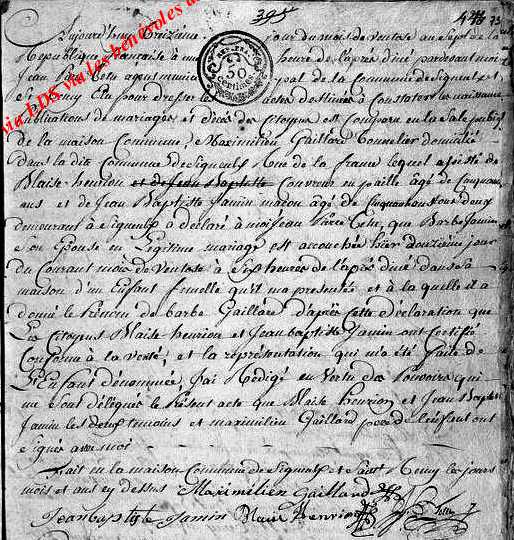 395
473 73
via LDS via les bénévoles
REP. FRA.
50
centimes
Aujourd'huy Treizieme jour du mois de ventose au sept de la
Republique francaise à une heure de l'apres diné pardevant moi
Jean agent municipal de la Commune de Signeulx et
St Remy Elu pour dresser les actes destinés à Constater les naissance
publications de mariages et décès des Citoyens est comparu en la sale publique
de la maison Commune, Maximilien Gaillard Tonnelier domicilié
dans la dite Commune de Signeulx Rue de la france lequel assisté de
Blaise henrion et de Jean Baptiste Couvreur en paille âgé de Cinquante
ans et de Jean Baptiste Jamin macon âgé de deux
demeurant à Signeulx a déclaré à moi Jean que Barbe Jamin
son Épouse en Légitime mariage est accouchée hier douzième jour
du Courant mois de Ventose à Sept heures de l'après diné dans sa
maison d'un Enfant femelle qu'il m'a presenté et à laquelle il a
donné le Prénom de barbe Gaillard d'après cette déclaration que
Les Citoyens Blaise henrion et Jean baptiste Jamin ont Certifié
Conforme à la verité, et la représentation qui m'a été faite de
L'Enfant dénommée, J'ai Rédigé en Vertu des Pouvoirs qui
me sont délégués le Présent acte que Blaise henrion et Jean Baptiste
Jamin les deux temoins et maximilien Gaillard pere de L'enfant ont
signés avec moi
Fait en la maison Commune de Signeulx et Saint Remy les jours
mois et ans ey dessus Maximilien Gaillard
Jean baptiste Jamin Blaise henrion